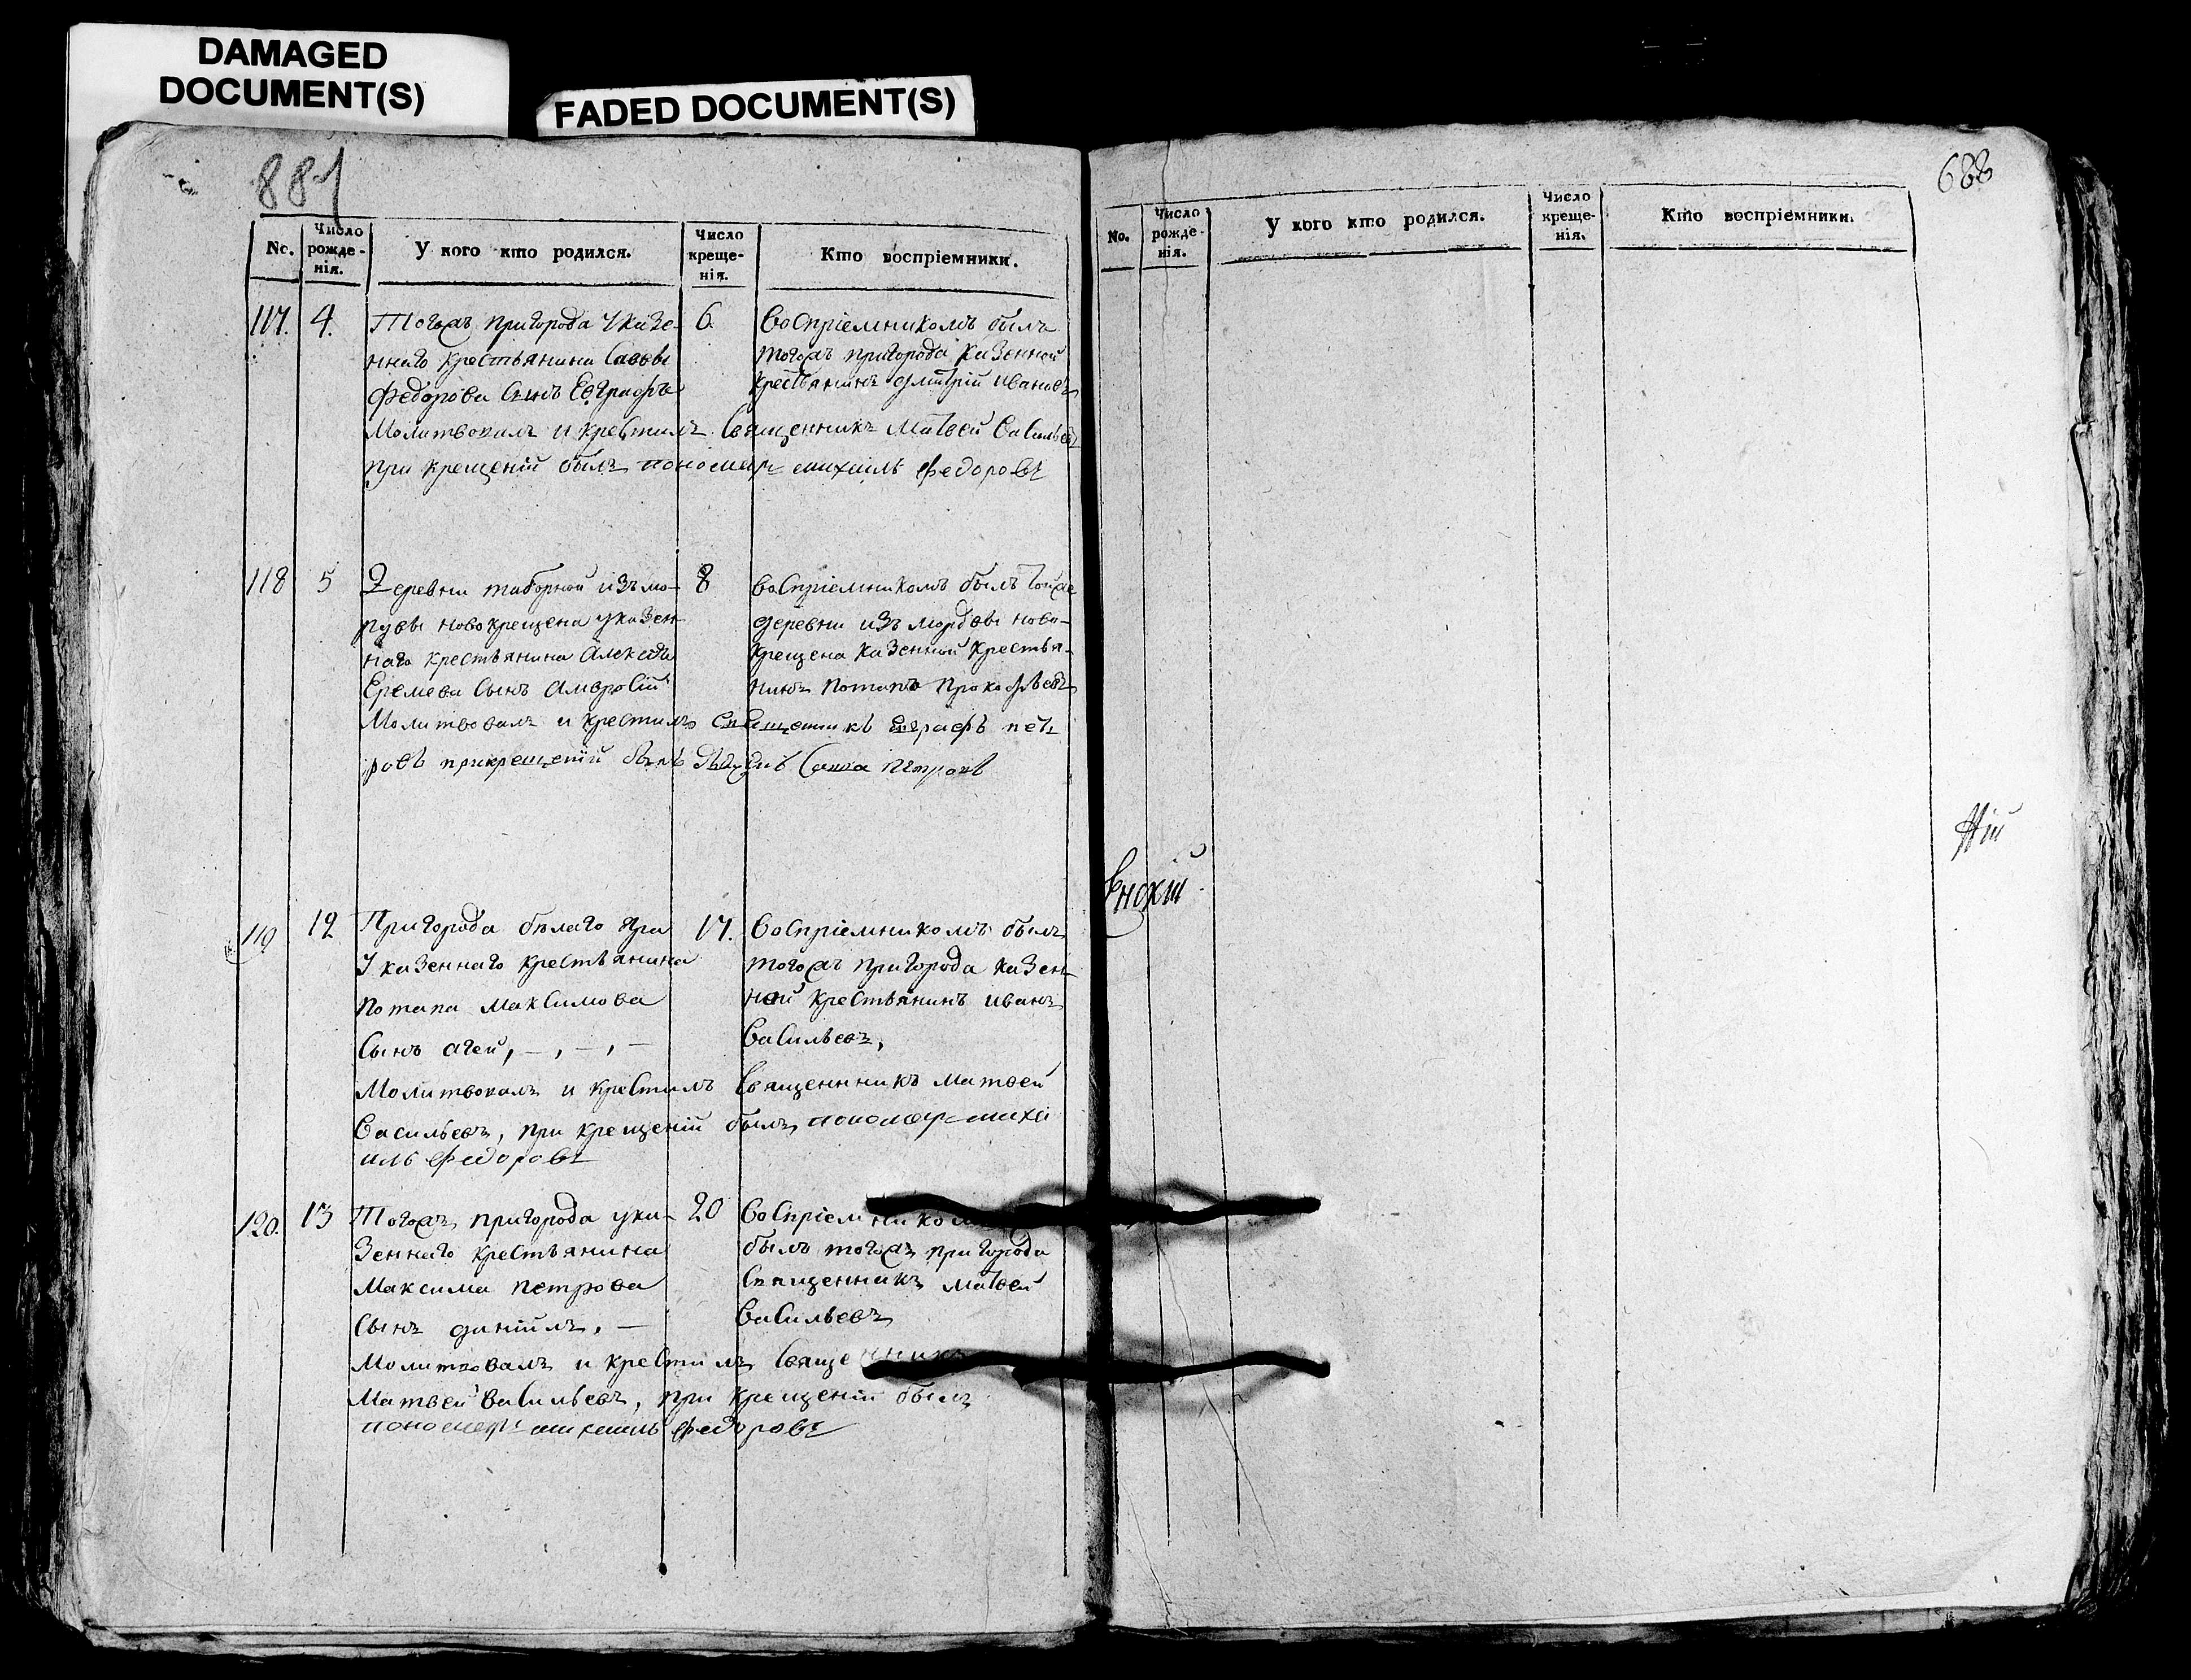 DAMAGED
DOCUMENT(S)
FADED DOCUMENT(S)
881
No.
Число рожде- нія.
У кого кто родился.
Число креще- нія.
Кто воспріемники.
117.
4.
Тогожъ пригорода Указе-
ннаго крестьянина Саввы
Федорова сынъ Евграфъ
6.
Воспріемникомъ былъ
тогожъ пригорода казенной
крестьянинъ Дмитрій Ивановъ
Молитвовалъ и крестилъ Священникъ Матвей Васильевъ
при крещеніи былъ пономарь михаилъ Федоровъ
118
5
Деревни таборной изъ мо-
рдвы новокрещена указен-
наго крестьянина Алексея
Еремева сынъ Амвросій
8
воспріемникомъ былъ тойже
деревни изъ мордвы ново-
крещена казенной крестья-
нинъ Потапъ Прокофьевъ
Молитвовалъ и крестилъ Священникъ Евграфъ пет-
ровъ при крещеніи былъ Савва Петровъ
119
12
Пригорода белаго Яра
Указеннаго крестьянина
Потапа Максимова
Сынъ Агей, – , – , –
17.
Воспріемникомъ былъ
тогожъ пригорода казен-
ной крестьянинъ Иванъ
Васильевъ,
Молитвовалъ и крестилъ Священникъ Матвей
Васильевъ, при крещеніи былъ пономарь михаи
илъ Федоровъ
120.
13
Тогожъ пригорода ука-
зеннаго крестьянина
Максима Петрова
Сынъ даніилъ, –
20
Воспріемникомъ
былъ тогожъ пригорода
Священникъ Матвей
Васильевъ
Молитвовалъ и крестилъ Священникъ
Матвей Васильевъ, при крещеніи былъ
пономарь михаилъ Федоровъ
688
No.
Число рожде- нія.
У кого кто родился.
Число креще- нія.
Кто воспріемники.